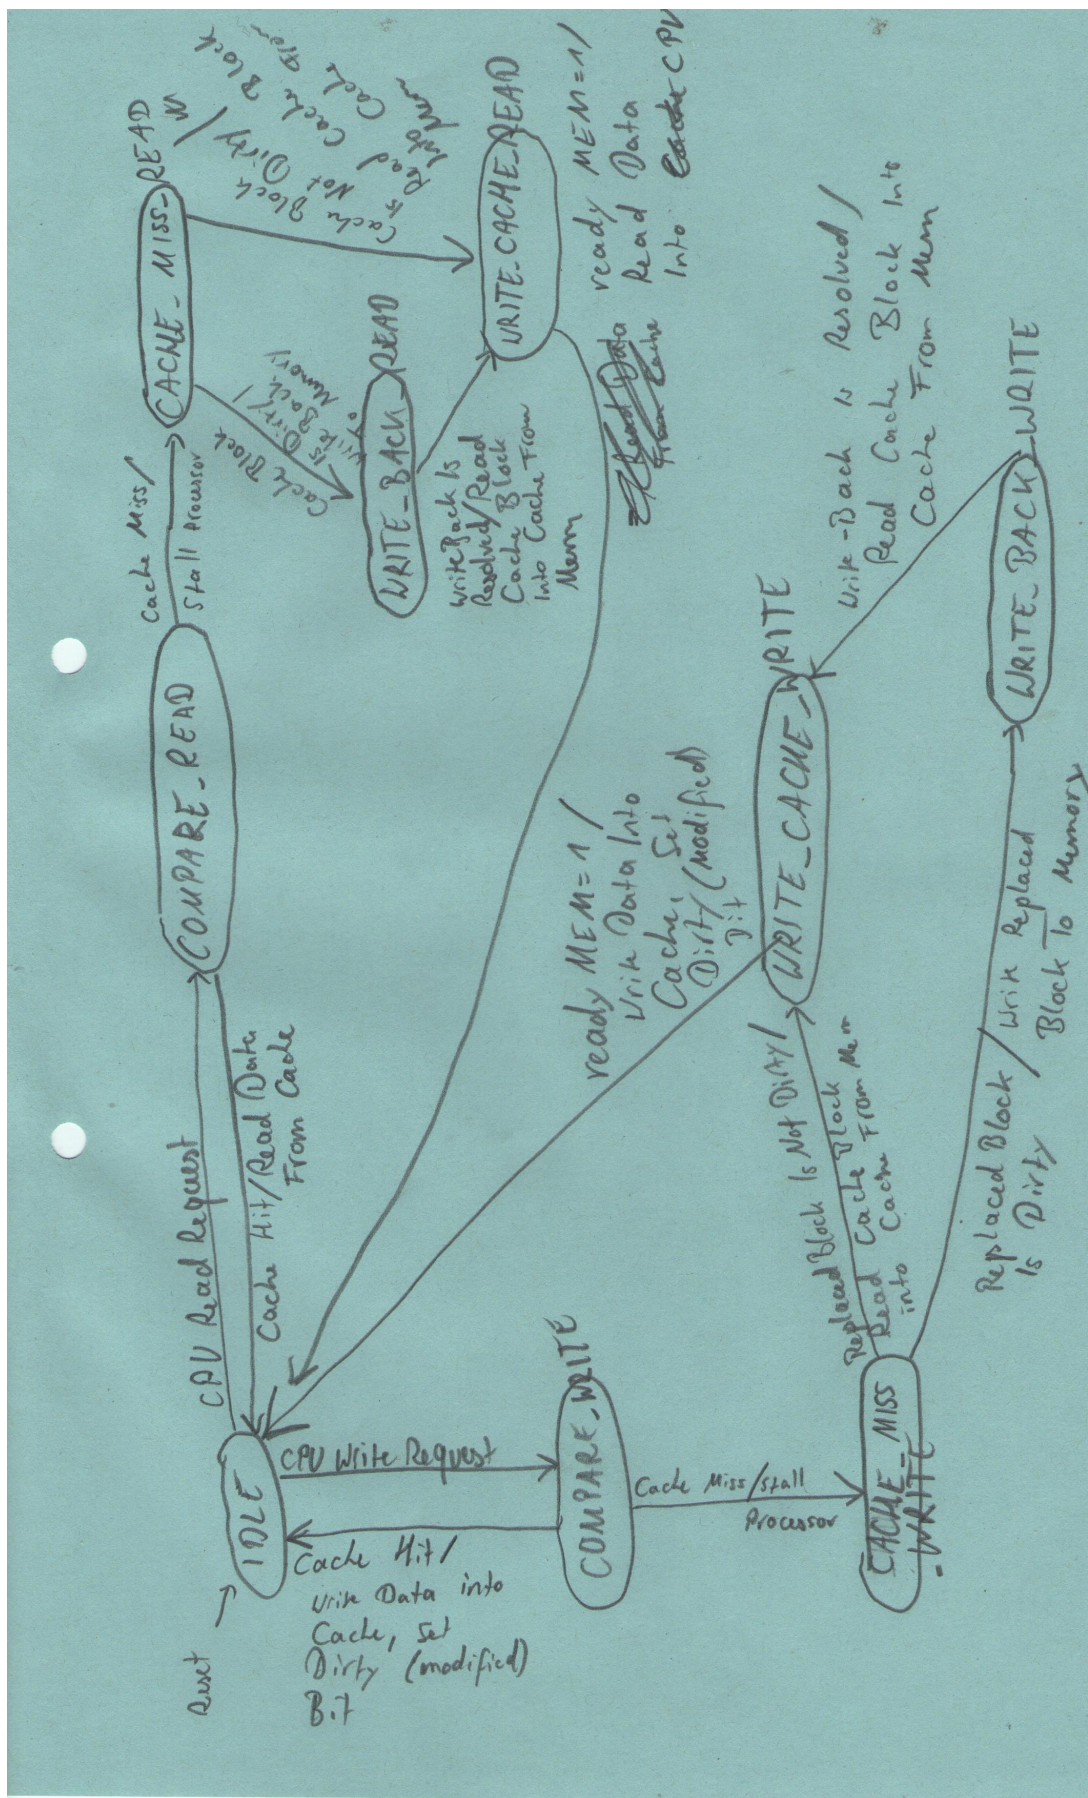 Reset
IDLE
CPU Read Request
Cache Hit/Read Data
From Cache
COMPARE_READ
Cache Miss/
Stall Processor
CACHE_MISS_READ
Cache Block
Is Dirty/
Write Back
To Memory
Cache Block
Is Not Dirty/
Read Cache Block
Into Cache From
Mem
WRITE_BACK_READ
Write Back Is
Resolved/Read
Cache Block
Into Cache From
Mem
WRITE_CACHE_READ
ready MEM=1/
Read Data
Into CPU
CPU Write Request
Cache Hit/
Write Data into
Cache, Set
Dirty (modified)
Bit
COMPARE_WRITE
Cache Miss/Stall
Processor
CACHE_MISS
_WRITE
Replaced Block Is Not Dirty/
Read Cache Block
into Cache From Mem
ready MEM=1/
Write Data Into
Cache, Set
Dirty (Modified)
Bit
WRITE_CACHE_WRITE
Replaced Block / Write Replaced
Is Dirty Block To Memory
WRITE_BACK_WRITE
Write-Back is Resolved/
Read Cache Block Into
Cache From Mem